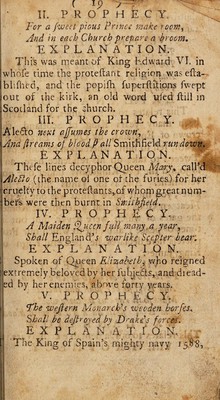 ( 19 )
II. PROPHECY.
For a sweet pious Prince make room,
And in each Church prepare a broom.
EXPLANATION.
This was meant of King Edward VI. in
whose time the protestant religion was esta-
blished, and the popish superstitions swept
out of the kirk, an old word used still in
Scotland for the church.
III. PROPHECY.
Alecto next assumes the crown,
And streams of blood shall Smithfield run down.
EXPLANATION.
These lines decypher Queen Mary, call'd
Alecto (the name of one of the furies) for her
cruelty to the protestants, of whom great num-
bers were then burnt in Smithfield.
IV. PROPHECY.
A Maiden Queen full many a year,
Shall England's warlike Scepter bear.
EXPLANATION.
Spoken of Queen Elizabeth, who reigned
extremely beloved by her subjects, and dread-
ed by her enemies, above forty years.
V. PROPHECY.
The western Monarch's wooden horses,
Shall be destroyed by Drake's forces.
EXPLANATION.
The King of Spain's mighty navy 1588,